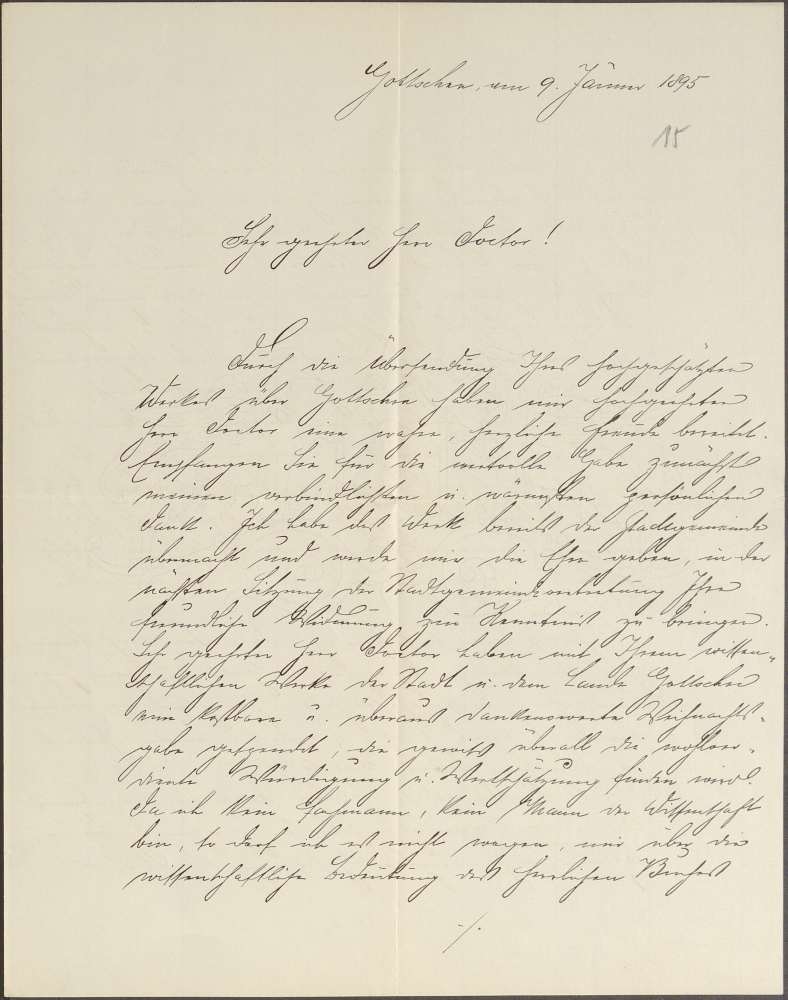 Gottschee, am 9. Jänner 1895
15
Sehr geehrter Herr Doctor!
Durch die Übersendung Ihres hochgeschätzten
Werkes über Gottschee haben mir hochgeehrter
Herr Doctor eine wahre, herzliche Freude bereitet.
Empfangen Sie für die wertvolle Gabe zunächst
meinen verbindlichsten u. wärmsten persönlichen
Dank. Ich habe das Werk bereits der Stadtgemeinde
übermacht und werde mir die Ehre geben, in der
nächsten Sitzung der Stadtgemeindevertretung Ihre
freundliche Widmung zur Kenntnis zu bringen.
Sehr geehrter Herr Doctor haben mit Ihrem wissen-
schaftlichen Werke der Stadt u. dem Lande Gottschee
eine kostbare u. überaus dankenswerte Weihnachts-
gabe gespendet, die gewiss überall die wohlver-
diente Würdigung u. Wertschätzung finden wird.
Da ich kein Fachmann, kein Mann der Wissenschaft
bin, so darf ich es nicht wagen, mir über die
wissenschaftliche Bedeutung des herrlichen Buches
./.